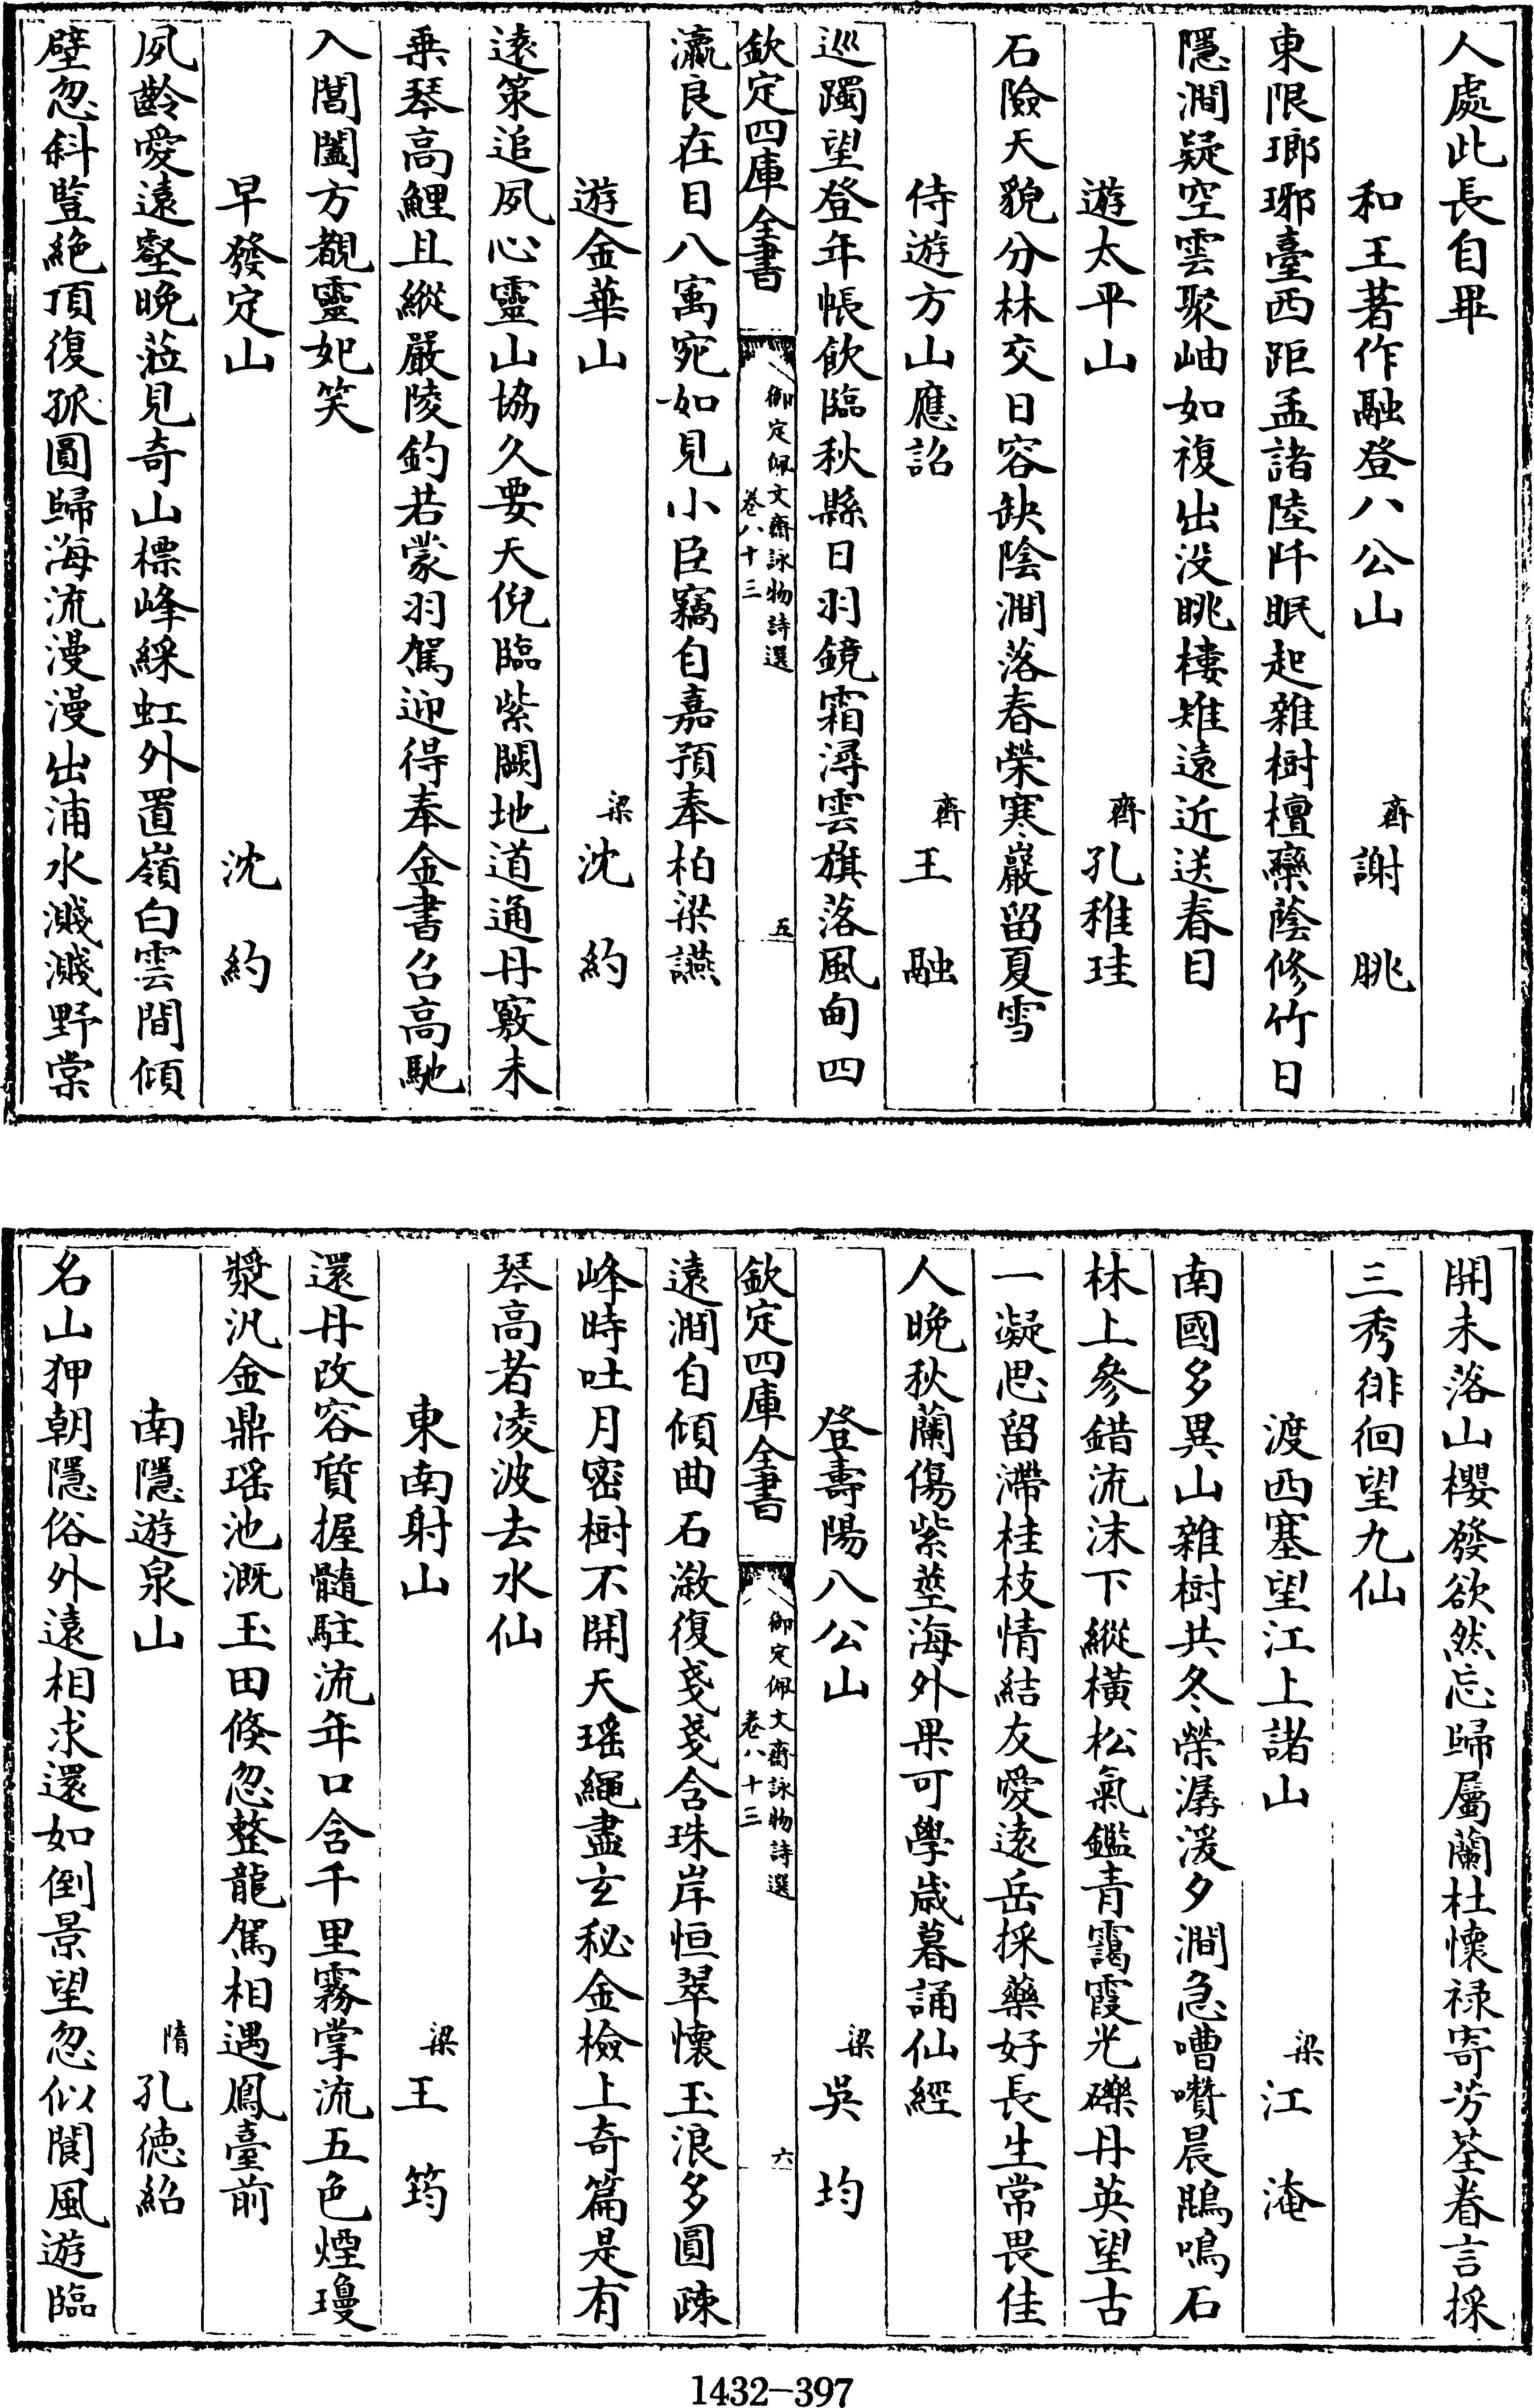 人處此長自畢
和王著作融登八公山 齊 謝朓
東限瑯琊臺西距孟諸陸阡眠起雜樹檀欒蔭修竹日
隱澗疑空雲聚岫如複出没眺樓雉遠近送春目
遊太平山 齊 孔稚珪
石險天貌分林交日容缺陰澗落春榮寒巖留夏雪
侍遊方山應詔 齊 王融
巡躅望登年帳飲臨秋縣日羽鏡霜潯雲旗落風甸四
欽定四庫全書 御定佩文齋詠物詩選 卷八十三 五
瀛良在目八寓宛如見小臣竊自嘉預奉柏梁讌
遊金華山 梁 沈約
遠策追夙心靈山協久要天倪臨紫闕地道通丹竅未
乗琴高鯉且縱嚴陵釣若蒙羽駕迎得奉金書召高馳
入閶闔方覩靈妃笑
早發定山 沈約
夙齡愛遠壑晚蒞見奇山標峰綵虹外置嶺白雲間傾
壁忽斜豎絶頂復孤圓歸海流漫漫出浦水濺濺野棠
開未落山櫻發欲然忘歸屬蘭杜懷禄寄芳荃眷言採
三秀徘徊望九仙
渡西塞望江上諸山 梁 江淹
南國多異山雜樹共冬榮潺湲夕澗急嘈囋晨鵾鳴石
林上參錯流沫下縱横松氣鑑青靄霞光礫丹英望古
一凝思留滯桂枝情結友愛遠岳採藥好長生常畏佳
人晚秋蘭傷紫莖海外果可學歲暮誦仙經
登壽陽八公山 梁 吳均
欽定四庫全書 御定佩文齋詠物詩選 卷八十三 六
遠澗自傾曲石漵復戔戔含珠岸恒翠懷玉浪多圓疎
峰時吐月密樹不開天瑶繩盡玄秘金檢上奇篇是有
琴高者凌波去水仙
東南射山 梁 王筠
還丹改容質握髓駐流年口含千里霧掌流五色煙瓊
漿汎金鼎瑶池溉玉田倏忽整龍駕相遇鳳臺前
南隱遊泉山 隋 孔德紹
名山狎朝隱俗外遠相求還如倒景望忽似閬風遊臨
1432-397